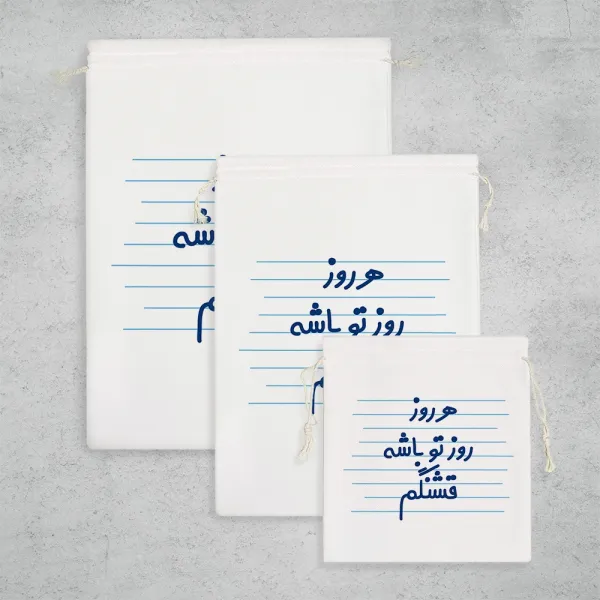 شه
م
هر روز
روز تو باشه
م
هر روز
روز تو باشه
قشنگم